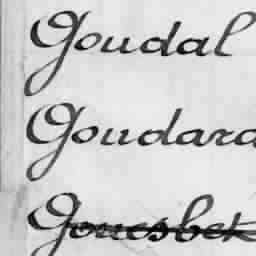 Goudal
Goudara
Gouesbet